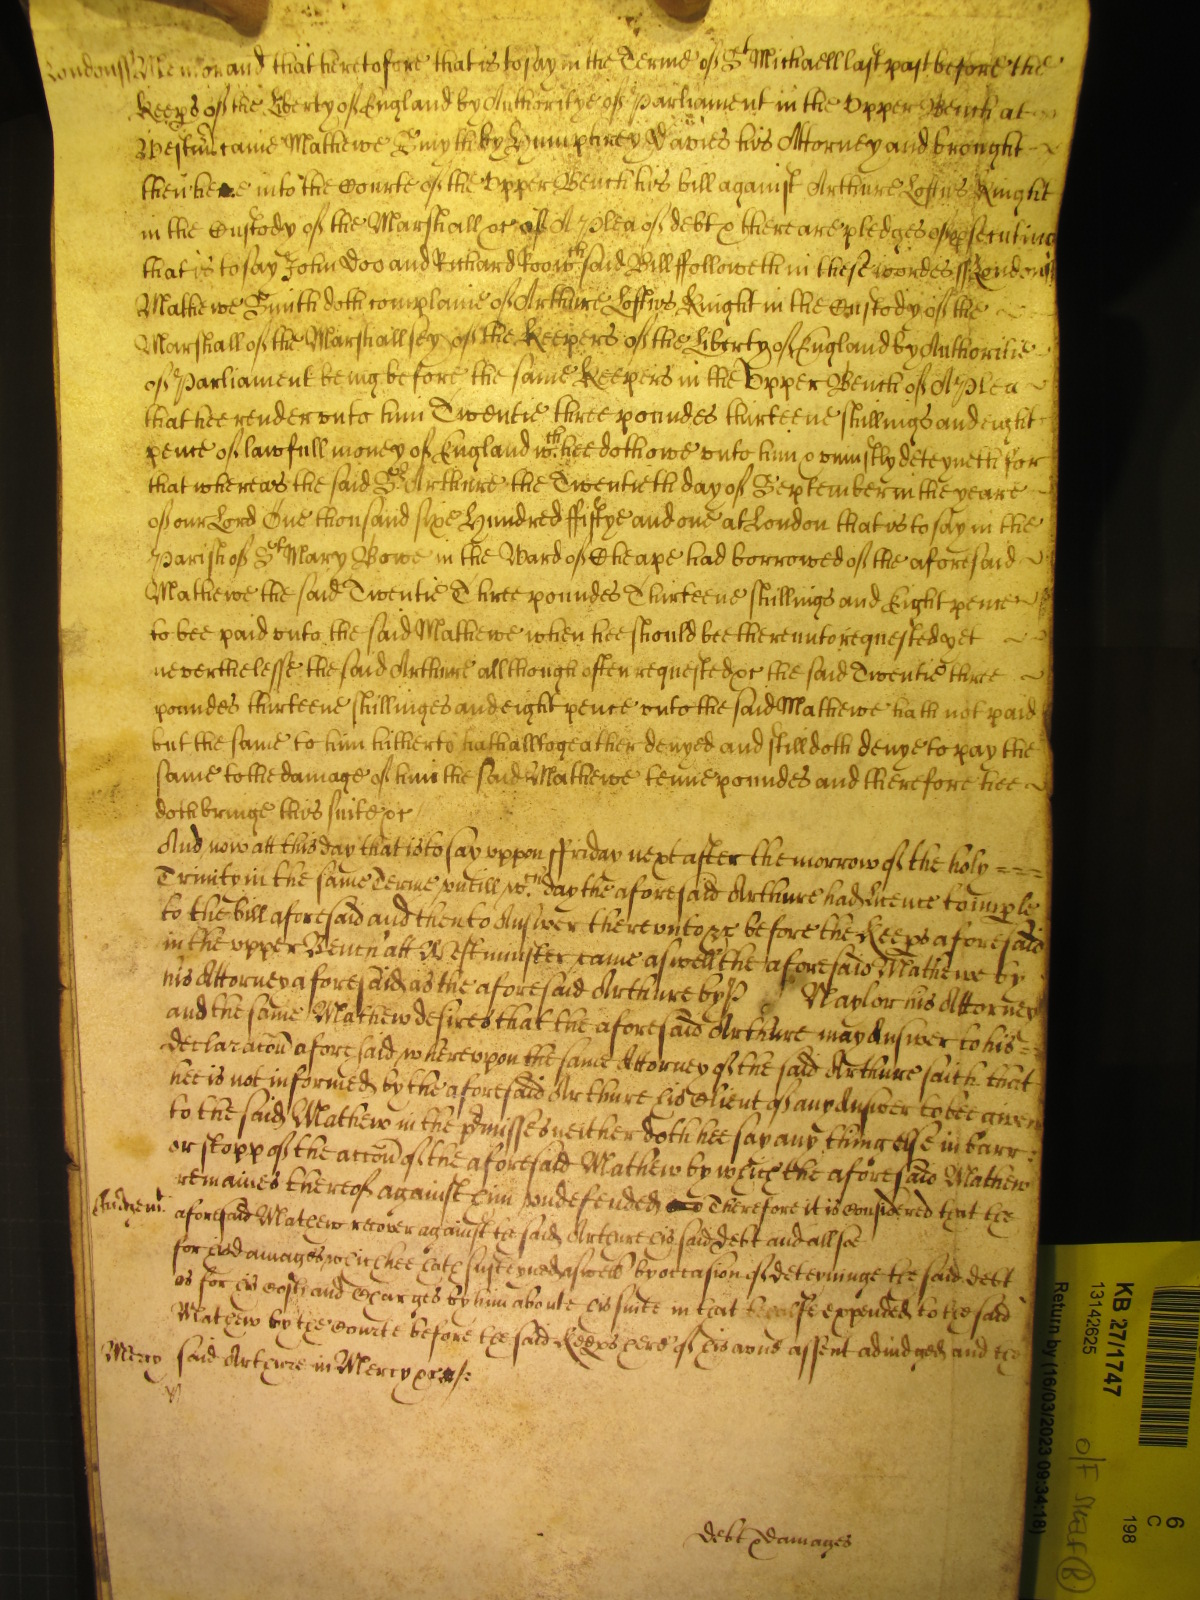 Londonss Memorand that heretofore that is to say in the Terme of St Michaell last past before the
Keeps of the Liberty of England by Authoritye of Parliament in the Upper Bench at
Westmr came Mathewe Smyth by Humphrey Davies his Attorney and brought
then here into the Courte of the Upper Bench his bill against Arthure Loftus Knight
in the Custody of the Marshall &c of A Plea of debt & there are pledges of psecuting
that is to say John Doo and Richard Roo wch said Bill followeth in these wordes ss London ss
Mathewe Smith doth complaine of Arthure Loftus Knight in the Custody of the
Marshall of the Marshallsey of the Keepers of the Liberty of England by Authoritie
of Parliament being before the same Keepers in the Upper Bench of A Plea
that hee render unto him Twentie three poundes thirteene shillings and eight
pence of lawfull money of England wch hee doth owe unto him & uniustly deteyneth for
that whereas the said Sr Arthure the Twentieth day of September in the yeare
of our Lord One thousand sixe Hundred ffiftye and one at London that is to say in the
Parish of St Mary Bowe in the Ward of Cheape had borrowed of the aforesaid
Mathewe the said Twentie Three poundes Thirteene shillings and Eight pence
to bee paid unto the said Mathewe when hee should bee thereunto requested yet
neverthelesse the said Arthure allthough often requested &c the said Twentie three
poundes thirteene shillinges and eight pence unto the said Mathewe hath not paid
but the same to him hitherto hath alltogeather denyed and still doth denye to pay the
same to the damage of him the said Mathewe tenne poundes and therefore hee
doth bringe this suite &c
And now att this day that is to say uppon ffriday next after the morrow of the holy
Trinity in the same Terme untill wch day the aforesaid Arthure had licence to imple
to the bill aforesaid and then to Answer thereunto &c before the Keeps aforesaid
in the upper Bench att Westminster came aswell the aforesaid Mathewe by
his Attorney aforesaid as the aforesaid Arthure by P Naylor his Attorney
and the same Mathew desires that the aforesaid Arthure may Answer to his
declaracon aforesaid whereupon the same Attorney of the said Arthure saith that
hee is not informed by the aforesaid Arthure his Client of any Answer to bee given
to the said Mathew in the pmisses neither doth hee say any thing else in barr
or stopp of the accon of the aforesaid Mathew by which the aforesaid Mathew
remaines thereof against him undefended Therefore it is Considered that the
Judgemt aforesaid Mathew recover against the said Arthure his said debt and allsoe
for his damages which hee hath susteyned aswell by occasion of deteyninge the said debt
as for his Costs and Charges by him aboute his suite in that behalfe expended to the said
Mathew by the Courte before the said Keeps here of his owne assent adiudged and the
Mercy said Arthure in Mercy &c
debt & damages
KB 27/1747
13142625
Return by (16/03/2023 09:34:18)
6
C
198
O/F Shelf (B)